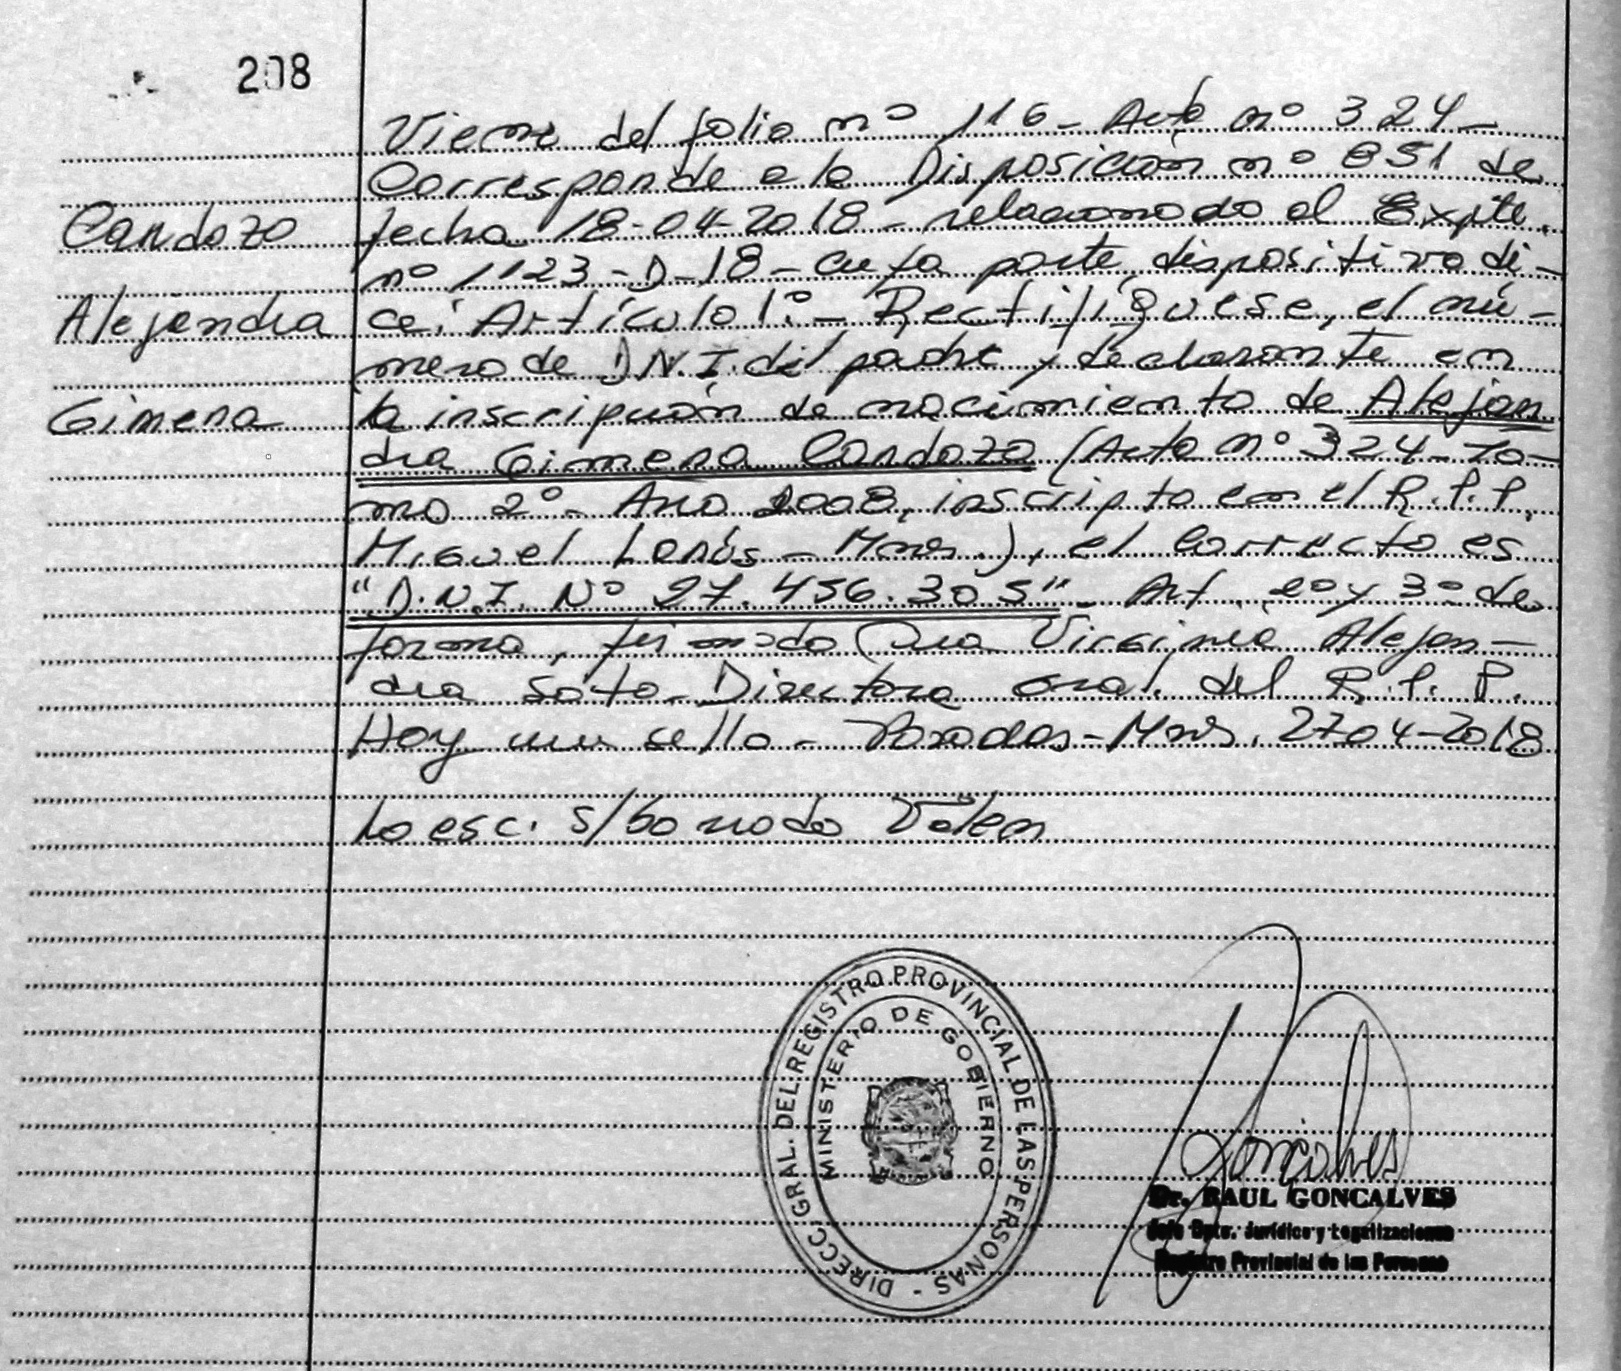 208
Viene del folio nº 116 - Acta nº 324 -
Corresponde a la Disposición nº 851 de
Cardozo
fecha 18-04-2018 - relacionado al Expte.
nº 1123-D-18 - cuya parte dispositiva di-
Alejandra
ce: Artículo 1º - Rectifíquese, el nú-
mero de D.N.I. del padre y declarante en
Gimena
la inscripción de nacimiento de Alejan
dra Gimena Cardozo (Acta nº 324 - To-
mo 2º - Ano 2008, inscripta en el R.P.P.
Miguel Lanús - Mnes.), el correcto es
"D.N.I. Nº 27.456.305" - Art. 2º y 3º de
forma, firmado Dra Virginia Alejan-
dra Soto - Directora Gral. del R.P.P.
Hay un sello - Posadas - Mnes. 27-04-2018
Lo esc. s/borrado Valen
DIRECC. GRAL. DEL REGISTRO PROVINCIAL DE LAS PERSONAS -
MINISTERIO DE GOBIERNO
Gonçalves
Dr. RAUL GONCALVES
Jefe Dpto. Jurídico y Legalizaciones
Registro Provincial de las Personas